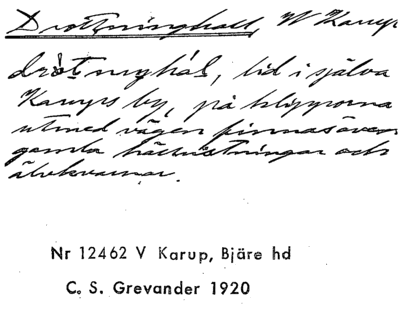 Drottninghall, V Karup
dròtnıŋhál, lid i själva
Karups by, på klipporna
utmed vägen finnas även
gamla hällristningar och
älvkvarnar.
Nr 12462 V Karup, Bjäre hd
C. S. Grevander 1920